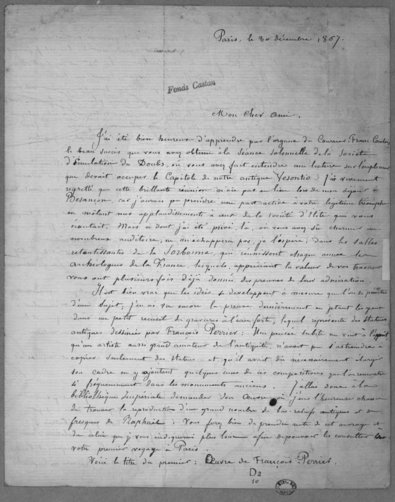 Paris, le 30 décembre, 1867.
Fonds Castan
Mon cher ami,
J'ai été bien heureux d'apprendre par l'organe du Courrier Franc-Comtois,
le beau succès que vous avez obtenu à la séance solennelle de la Société
d'Émulation du Doubs, où vous avez fait entendre une lecture sur l'emplacement
que devait occuper le Capitole de notre antique Vesontio. J'ai vivement
regretté que cette brillante réunion n'ait pas eu lieu lors de mon séjour à
Besançon, car j'aurais pu prendre une part active à votre légitime triomphe
en mêlant mes applaudissements à ceux de la société d'élite qui vous
écoutait. Mais si dont j'ai été privé là, où vous avez su charmer un
nombreux auditoire, ne m'échappera pas, je l'espère, dans les salles
retentissantes de la Sorbonne, qui réunissent chaque année les
archéologues de la France, lesquels apprécient la valeur de vos travaux
vous ont plusieurs fois déjà donné des preuves de leur admiration.
Il est bien vrai que les idées se développent à mesure que l'on se pénètre
d'un sujet, j'en ai eu encore la preuve dernièrement en jetant les yeux
dans un petit recueil de gravures à l'eau forte, lequel représente des statues
antiques dessinées par François Perrier: Une pensée subite me vint à l'esprit
qu'un artiste aussi grand amateur de l'antiquité, n'avait pas dû s'astreindre à
copier seulement des statues et qu'il avait dû nécessairement élargir
son cadre en y ajoutant quelques unes de ces compositions que l'on rencontre
si fréquemment dans les monuments anciens. J'allai donc à la
bibliothèque Impériale demander son œuvre, j'eus l'heureuse chance
de trouver la reproduction d'un grand nombre de bas-reliefs antiques et de
fresques de Raphaël: Vous ferez bien de prendre note de cet ouvrage et
du celui que je vous indiquerai plus loin afin de pouvoir les consulter lors
votre premier voyage à Paris.
Voici le titre du premier: Œuvre de François Perrier
D2
10